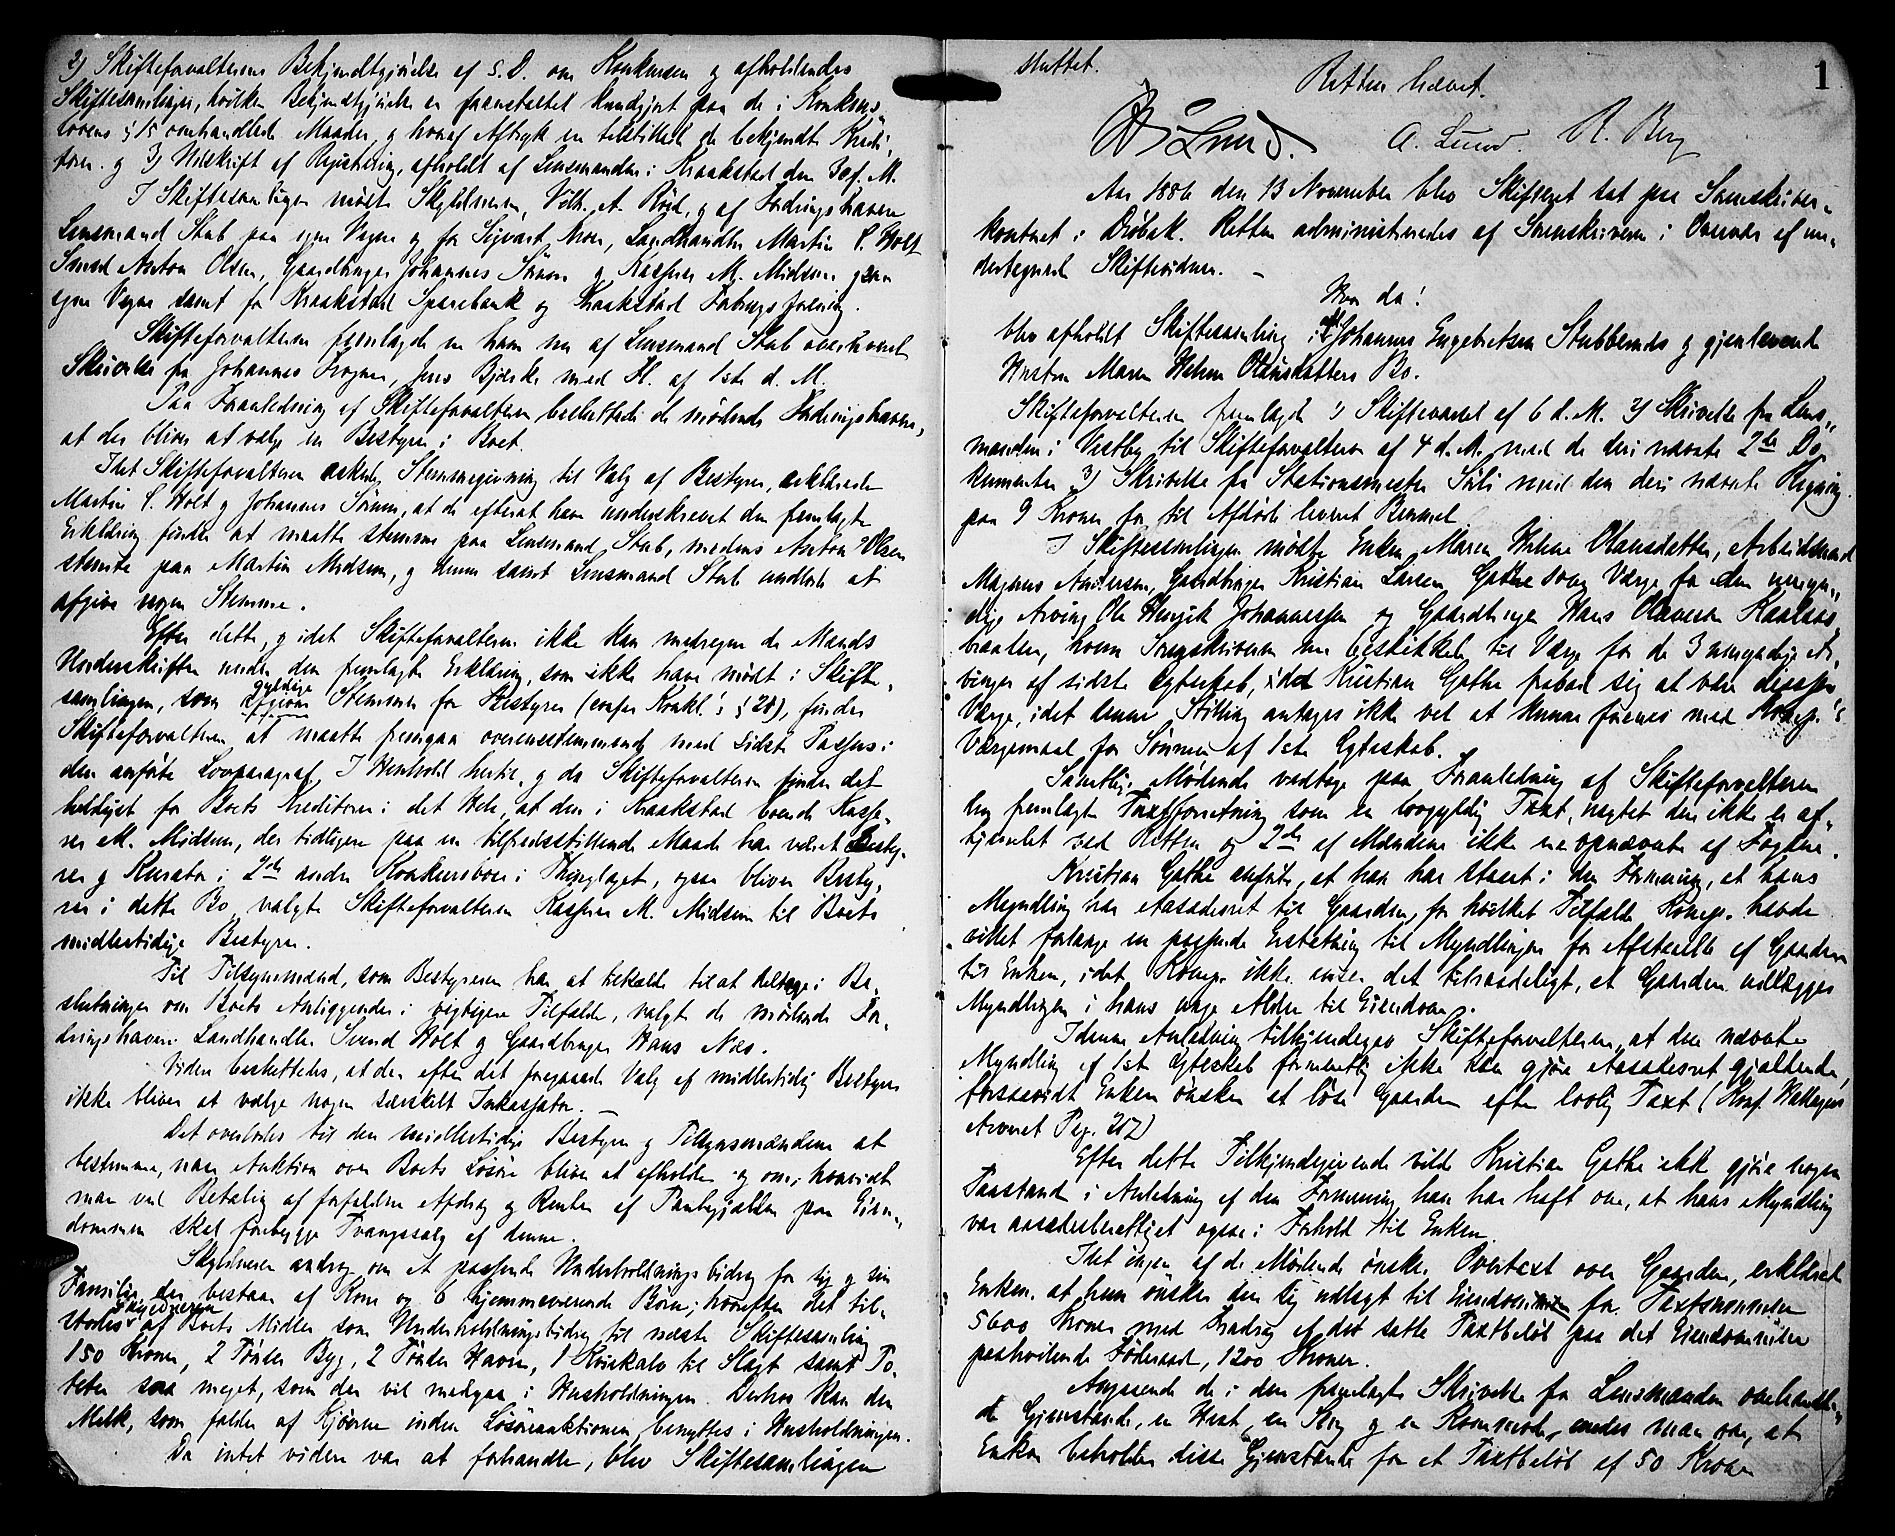 2) Skifteforvalterens Bekjendtgjørelse af s. D. om Konkursen og afholdendes
Skiftesamlinger, hvilken Bekjendtgjørelse er foranstaltet kundgjort paa de i Konkurs-
lovens § 15 omhandlede Maader, og hvoraf Aftryk er tilstillet de bekjendte Kredi-
torer. og 3) Udskrift af Registrering, afholdt af Lensmanden i Kraakstad den 3 d. M.
I Skiftesamlingen mødte Skyldneren, Vilh. A. Röed, og af Fordringshavere
Lensmand Stub paa egne Vegne og for Sigvart Moer, Landhandler Martin S. Holt
Smed Anton Olsen, Gaardbruger Johannes Sörum og Kasserer M. Midsem paa
egne Vegne samt for Kraakstad Sparebank og Kraakstad Forbrugsforening.
Skifteforvalteren fremlagde en ham nu af Lensmand Stub overleveret
Skrivelse fra Johannes Krogner, Jens Bjerke med Fl. af 1ste d. M.
Paa Foranledning af Skifteforvalteren besluttede de mødende Fordringshavere,
at der bliver at vælge en Bestyrer i Boet.
Idet Skifteforvalteren æskede Stemmegivning til Valg af Bestyrer, erklærede
Martin S. Holt og Johannes Sörum, at de efterat have underskrevet den fremlagte
Erklæring finder at maatte stemme paa Lensmand Stub, medens Anton Olsen
stemte paa Martin Midsem, og denne samt Lensmand Stub undlod at
afgive nogen Stemme.
Efter dette, og idet Skifteforvalteren ikke kan medregne de Mænds
Underskrifter under den fremlagte Erklæring, som ikke have mødt i Skifte-
samlingen, som gyldige afgivne Stemmer for Bestyrer (confer Konkl.'s § 28), finder
Skifteforvalteren at maatte fremgaa overensstemmende med sidste Passus i
den anførte Lovparagraf. I Henhold hertil, og da Skifteforvalteren finder det
heldigst for Boets Kreditorer i det Hele, at den i Kraakstad boende Kasse-
rer M. Midsem, der tidligere paa en tilfredsstillende Maade har været Besty-
rer og Kurator i 2de andre Konkursboer i Thinglaget, ogsaa bliver Besty-
rer i dette Bo, valgte Skifteforvalteren Kasserer M. Midsem til Boets
midlertidige Bestyrer.
Til Tilsynsmænd, som Bestyreren har at tilkalde til at deltage i Be-
slutninger om Boets Anliggender i vigtigere Tilfælde, valgte de mødende For-
dringshavere Landhandler Svend Holt og Gaardbruger Hans Næs.
Videre besluttedes, at der efter det foregaaede Valg af midlertidig Bestyrer
ikke bliver at vælge nogen særskilt Inkassator. —
Det overlodes til den midlertidige Bestyrer og Tilsynsmændene at
bestemme, naar Auktion over Boets Løsøre bliver at afholde og om, hvorvidt
man ved Betaling af forfaldne Afdrag og Renter af Pantegjælden paa Eien-
dommen skal forebygge Tvangssalg af denne.
Skyldneren androg om et passende Underholdningsbidrag for sig og sin
Familie, der bestaar af Kone og 6 hjemmeværende Børn; hvorefter det til-
stodes Skyldneren af Boets Midler som Underholdningsbidrag til næste Skiftesamling
150 Kroner, 2 Tønder Byg, 2 Tønder Havre, 1 Kviekalv til Slagt samt Po-
teter saa meget, som der vil medgaa i Husholdningen. Derhos kan den
Melk, som falder af Kjøerne inden Løsøreauktionen benyttes i Husholdningen.
Da intet videre var at forhandle, blev Skiftesamlingen
1
sluttet.
Retten hævet.
Lund. A. Lund. R. Berg
Aar 1886 den 13 November blev Skifteret sat paa Sorenskriver-
kontoret i Drøbak. Retten administreredes af Sorenskriveren i Overvær af un-
dertegnede Skiftevidner. —
Hvor da:
blev afholdt Skiftesamling i afd. Johannes Engebretsen Stubberuds og gjenlevende
Hustru Maren Helene Olausdatters Bo.
Skifteforvalteren fremlagde 1) Skiftevarsel af 6 d. M. 2) Skrivelse fra Lens-
manden i Vestby til Skifteforvalteren af 4 d. M. med de deri nævnte 2de Do-
kumenter 3) Skrivelse fra Stationsmester Sæli med den deri nævnte Regning
paa 9 Kroner for til Afdøde leveret Brændsel
I Skiftesamlingen mødte Enken Maren Helene Olausdatter, Arbeidsmand
Magnus Andersen, Gaardbruger Kristian Larsen Gathe som Værge for den umyn-
dige Arving Ole Henrik Johannessen og Gaardbruger Hans Olausen Kaalaas-
braaten, hvem Sorenskriveren nu beskikked til Værge for de 3 umyndige Ar-
vinger af sidste Egteskab, idet Kristian Gathe frabad sig at være desses
Værge, idet denne Stilling antages ikke vel at kunne forenes med Komp.'s
Værgemaal for Sønnen af 1ste Egteskab.
Samtlige Mødende vedtoge paa Foranledning af Skifteforvalteren
den fremlagte Taxtforretning som en lovgyldig Taxt, uagtet den ikke er af-
hjemlet ved Retten og 2de af Mændene ikke ere opnævnte af Fogden.
Kristian Gathe anførte, at han har staaet i den Formening, at hans
Myndling har Aasædesret til Gaarden, for hvilket Tilfælde Komp. havde
villet forlange en passende Erstatning til Myndlingen for Afstaaelse af Gaarden
til Enken, idet Komp. ikke anser det tilraadeligt, at Gaarden udlægges
Myndlingen i hans unge Alder til Eiendom.
I denne Anledning tilkjendegav Skifteforvalteren, at den nævnte
Myndling af 1ste Egteskab formentlig ikke kan gjøre Aasædesret gjældende,
forsaavidt Enken ønsker at løse Gaarden efter lovlig Taxt (Konf. Hallagers
Arveret Pag. 217)
Efter dette Tilkjendegivende vilde Kristian Gathe ikke gjøre nogen
Paastand i Anledning af den Formening han har haft om, at hans Myndling
var aasædesberettiget ogsaa i Forhold til Enken.
Idet ingen af de Mødende ønsker Overtaxt over Gaarden, erklærede
Enken, at hun ønsker den sig udlagt til Eiendommen for Taxtsummen
5600 Kroner med Fradrag af det satte Taxtbeløb paa det Eiendommen
paahvilende Føderaad, 1200 Kroner.
Angaaende de i den fremlagte Skrivelse fra Lensmanden omhandle-
de Gjenstande, en Hest, en Seng og en Kommode, enedes man om, at
Enken beholder disse Gjenstande for et Taxtbeløb af 50 Kroner